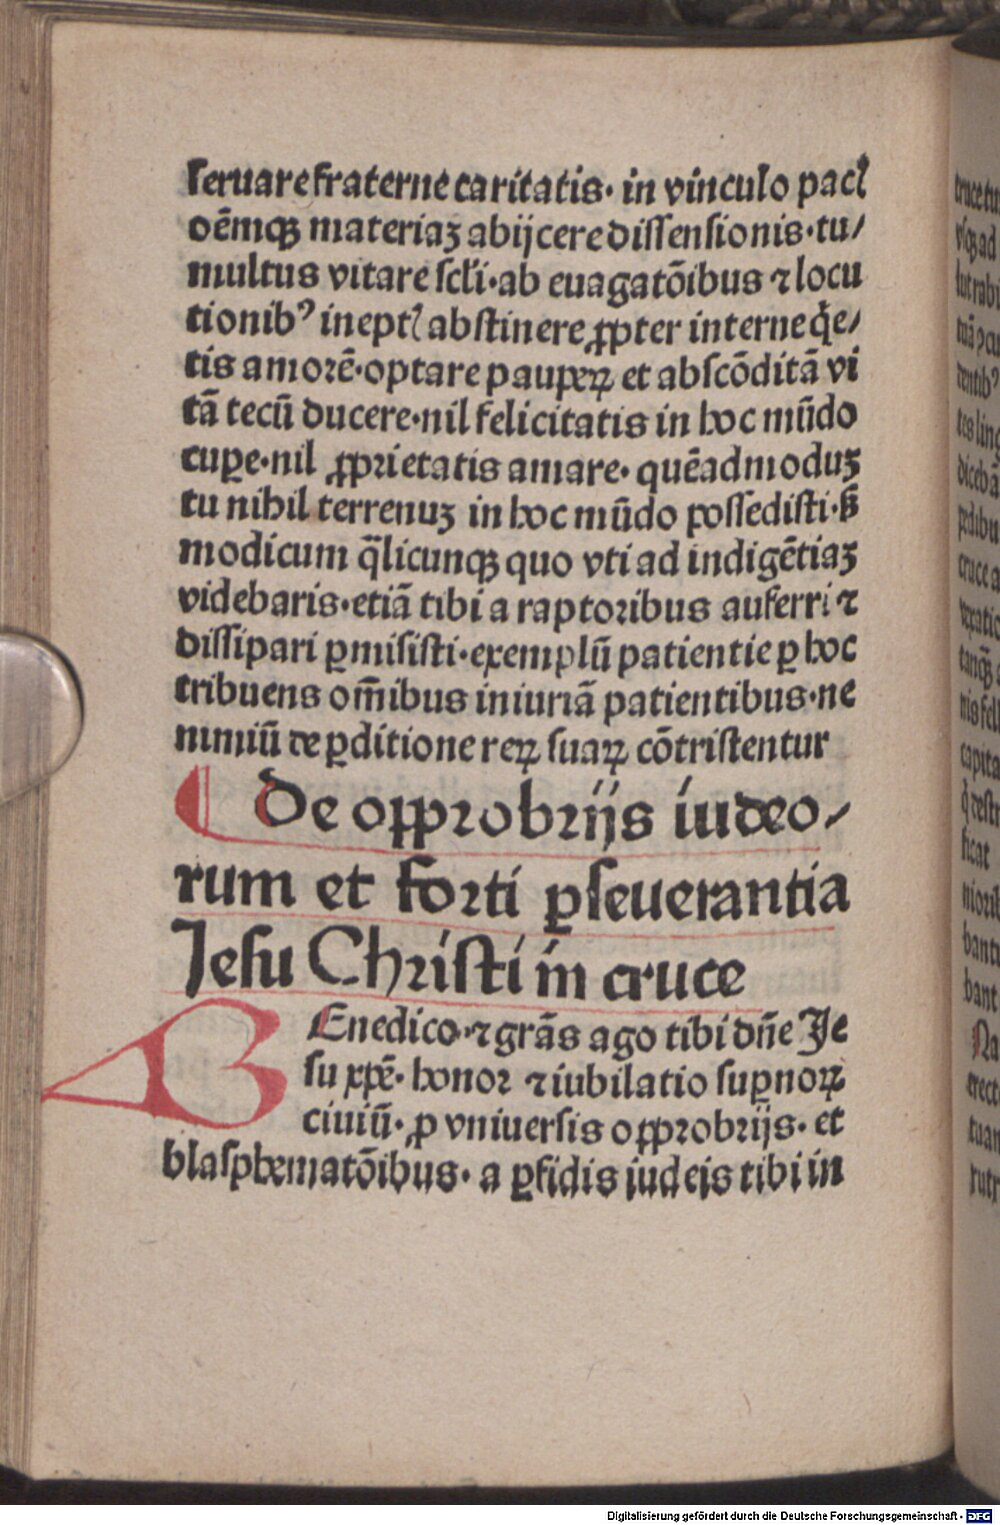 seruare fraterne caritatis· in vinculo pacꝭ
oẽmqꝫ materiaꝫ abijcere dissensionis·tu/
multus vitare scl̃i·ab euagatõibus ⁊ locu
tionibꝰ ineptꝭ abstinere ꝓpter interne q̃e/
tis amorẽ·optare pauꝑeꝝ et abscõditã vi
tã tecũ ducere·nil felicitatis in hoc mũdo
cuꝑe·nil ꝓprietatis amare· quẽadmoduꝫ
tu nihil terrenuꝫ in hoc mũdo possedisti·ß
modicum q̃licunqꝫ quo vti ad indigẽtiaꝫ
videbaris·etiã tibi a raptoribus auferri ⁊
dissipari ꝑmisisti·exemplũ patientie ꝑ hoc
tribuens om̃ibus iniuriã patientibus·ne
nimiũ de ꝑditione reꝝ suaꝝ cõtristentur
¶ De opprobrijs iudeo/
rum et forti ꝑseuerantia
Jesu Christi in cruce
BEnedico·⁊ grãs ago tibi dñe Je
su xp̃e· honor ⁊ iubilatio suꝑnoꝝ
ciuiũ· ꝓ vniuersis opprobrijs· et
blasphematõibus· a ꝑfidis iudeis tibi in
Digitalisierung gefördert durch die Deutsche Forschungsgemeinschaft - DFG